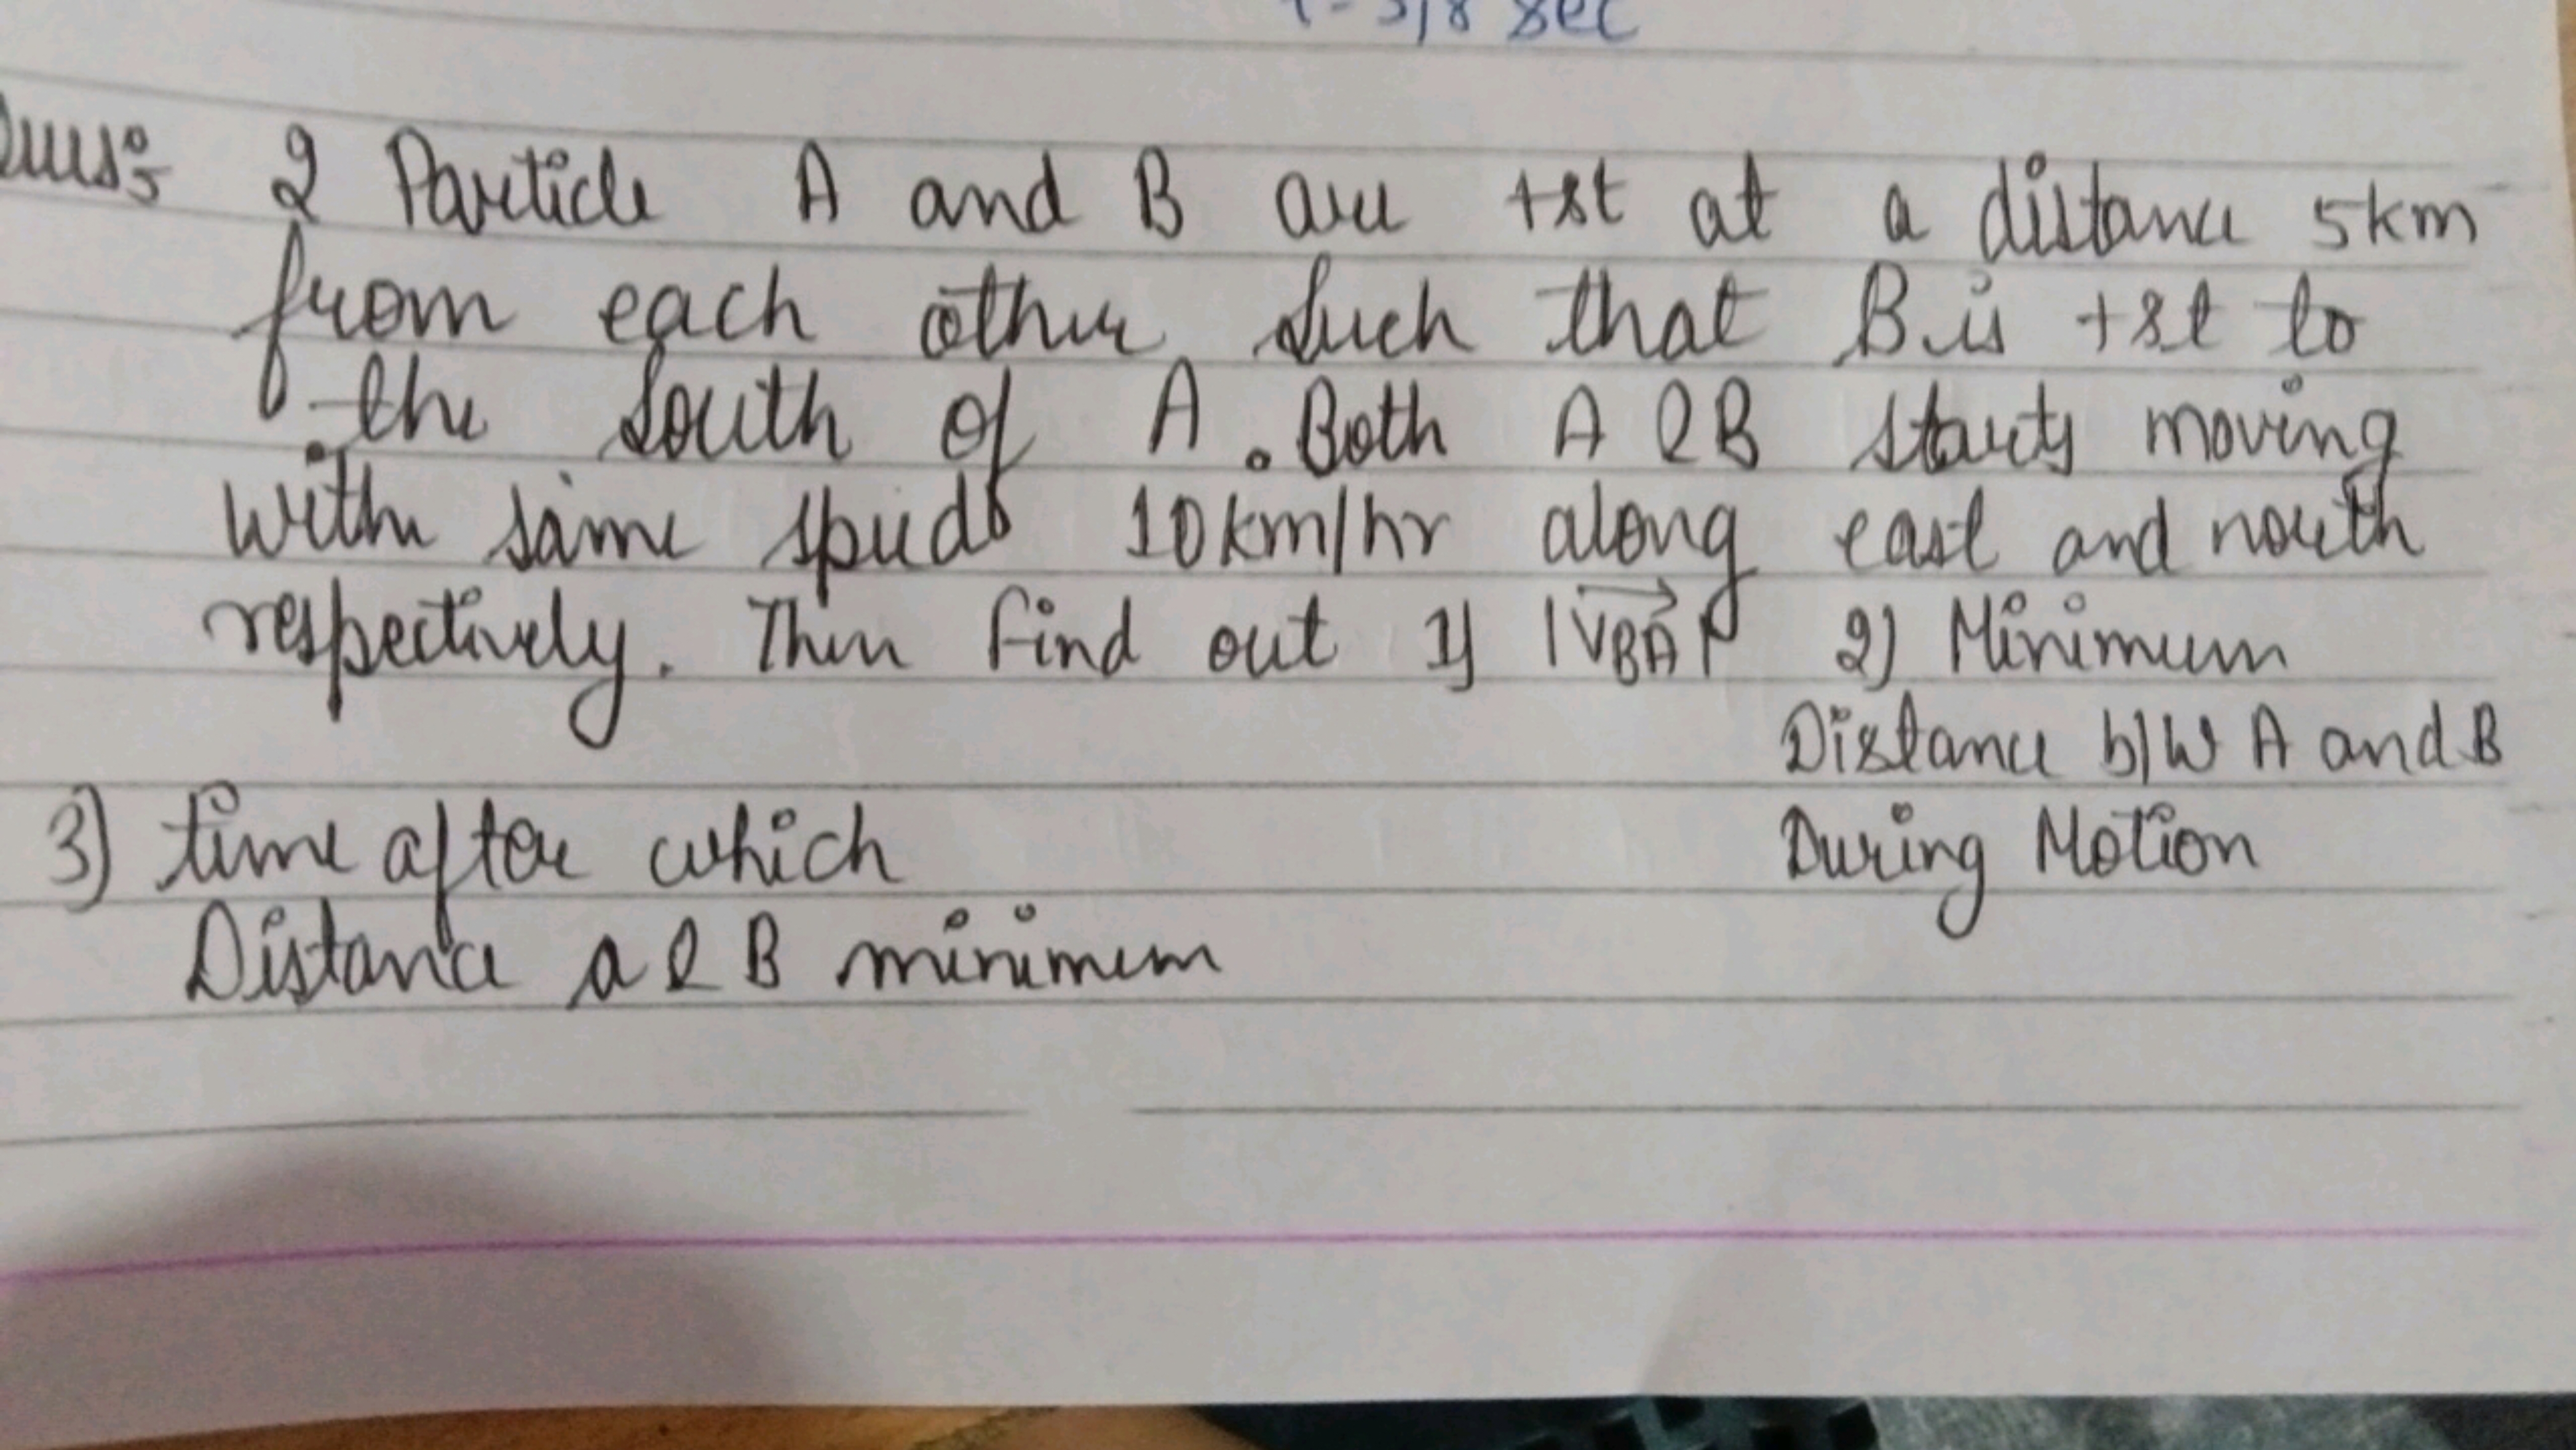 Ques:- 2 Particle A and B are +st at a distance 5km
from each other such that B is +st to
the south of A. Both A & B starts moving
with same speeds 10km/hr along east and north
respectively. Then find out 1) |VBA| 2) Minimum
Distance b/w A and B
During Motion
3) time after which
Distance a & B minimum